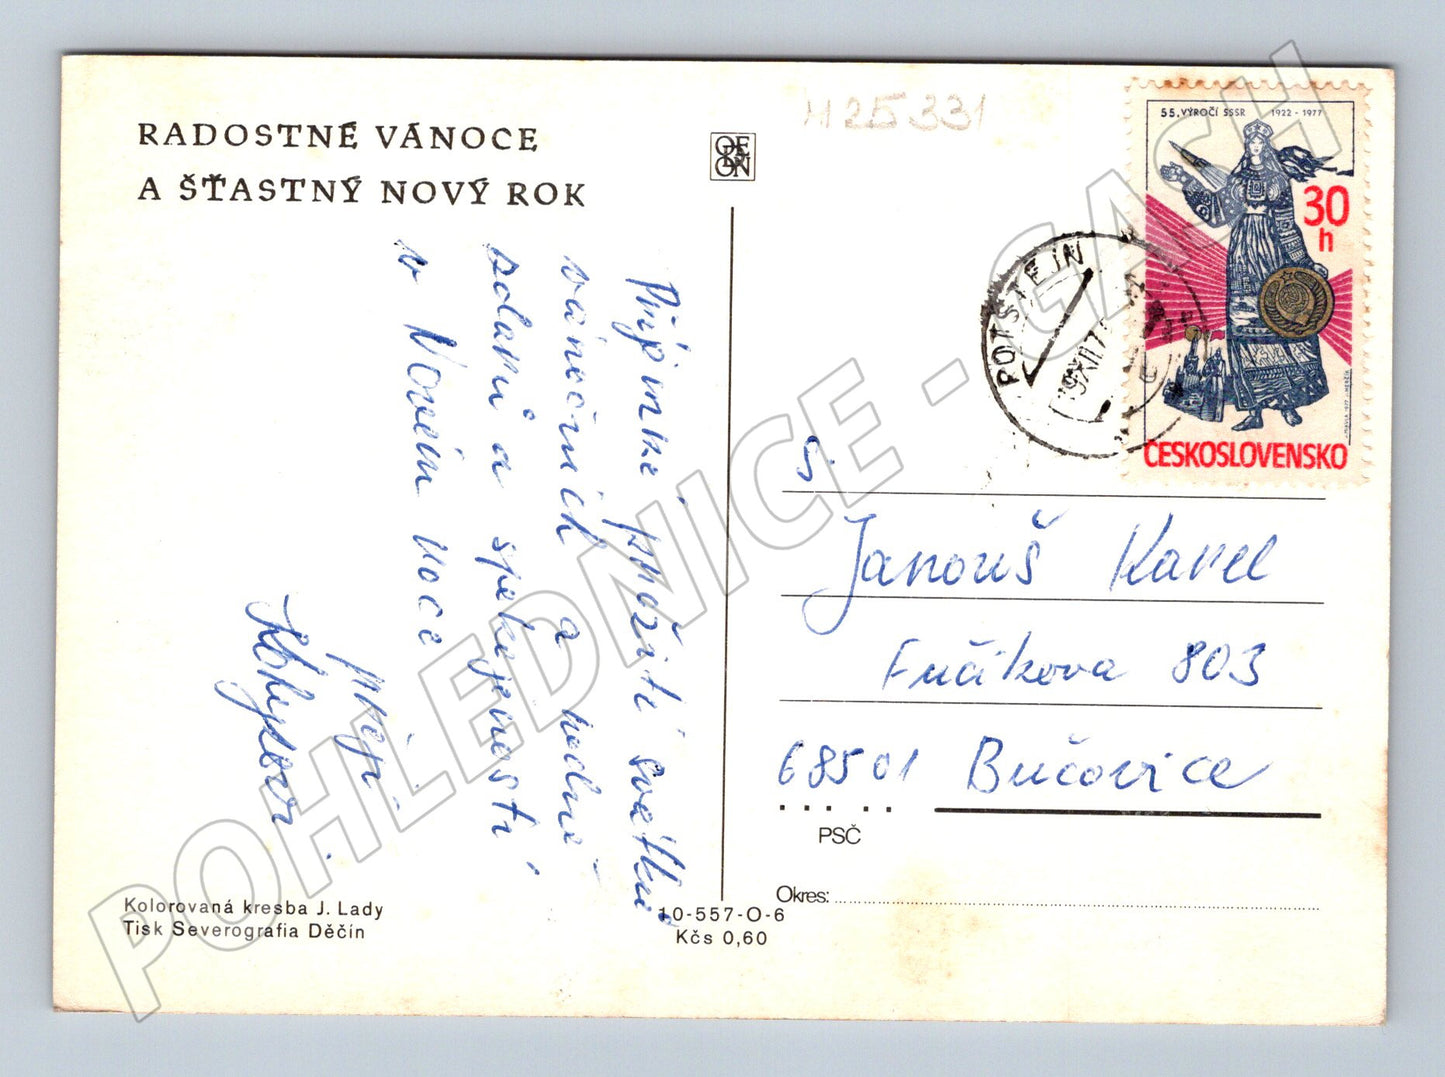 RADOSTNÉ VÁNOCE
A ŠŤASTNÝ NOVÝ ROK
Příjemné prožití svátků
vánočních a hodně
zdaru a spokojenosti
v Novém roce
přejí
Kolorovaná kresba J. Lady
Tisk Severografia Děčín
ODEON
10-557-O-6
Kčs 0,60
H25331
55. VÝROČÍ SSSR 1922 - 1977
30
h
ČESKOSLOVENSKO
POTŠTEJN
S.
Janouš Karel
Fučíkova 803
68501 Bučovice
PSČ
Okres:
POHLEDNICE - GASH